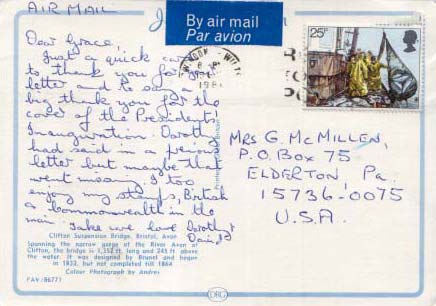 AIR MAIL
By air mail
Par avion
25P
SWINDON WILTS
198
Dear Grace,
Just a quick card
to thank you for your
letter and to say a
big thank you for the
cover of the Presidents
Inauguration. Dorothy
had said in a previous
letter but maybe that
went missing. I too
enjoy my stamps, British
& Commonwealth in the
main. Take care love Dorothy &
David
MRS G. McMILLEN,
P.O. BOX 75,
ELDERTON, Pa.
15736-0075
U.S.A.
Clifton Suspension Bridge, Bristol, Avon
Spanning the narrow gorge of the River Avon at
Clifton, the bridge is 1,352 ft. long and 245 ft. above
the water. It was designed by Brunel and begun
in 1832, but not completed till 1864
Colour Photograph by Andres
PAV/86771
DRG